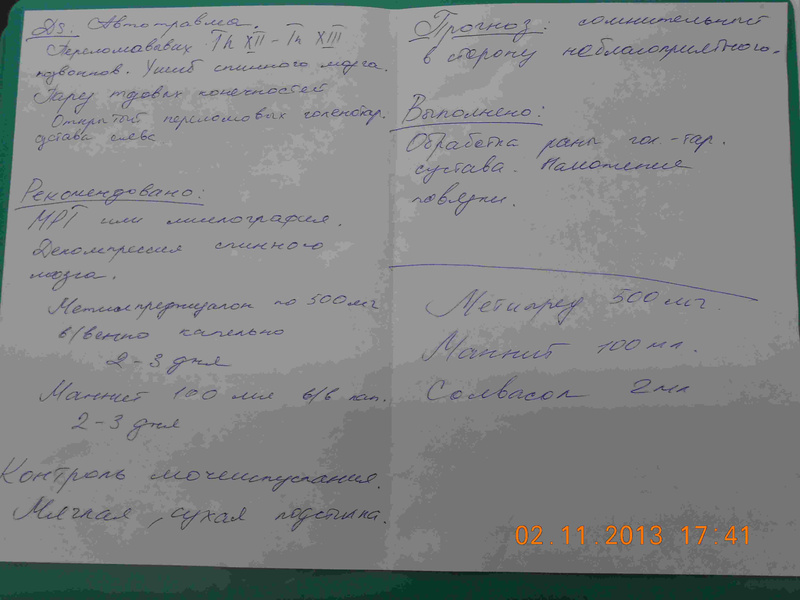 Ds. Автотравма.
Переломовывих Th XII – Th XIII
позвонков. Ушиб спинного мозга.
Парез тазовых конечностей
Открытый переломовывих голеностар.
сустава слева
Рекомендовано:
МРТ или миелография.
Декомпрессия спинного
мозга.
Метилпреднизалон по 500 мг
в/венно капельно
2 – 3 дня
Маннит 100 мл в/в кап.
2 – 3 дня
Контроль мочеиспускания.
Мягкая, сухая подстилка.
Прогноз: сомнительный
в сторону неблагоприятного.
Выполнено:
Обработка раны гол.-тар.
сустава. Наложение
повязки.
Метипред 500 мг.
Маннит 100 мл.
Солвасол 2 мл
02.11.2013 17:41